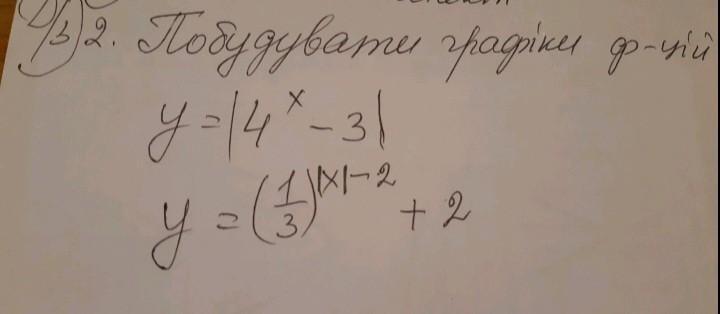 Д/з 2. Побудувати графіки ф-цій
y = |4^x - 3|
y = (1/3)^{|x|-2} + 2